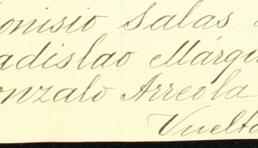 onisio Salas
adislao Márqu
onzalo Arreola
Vuelta